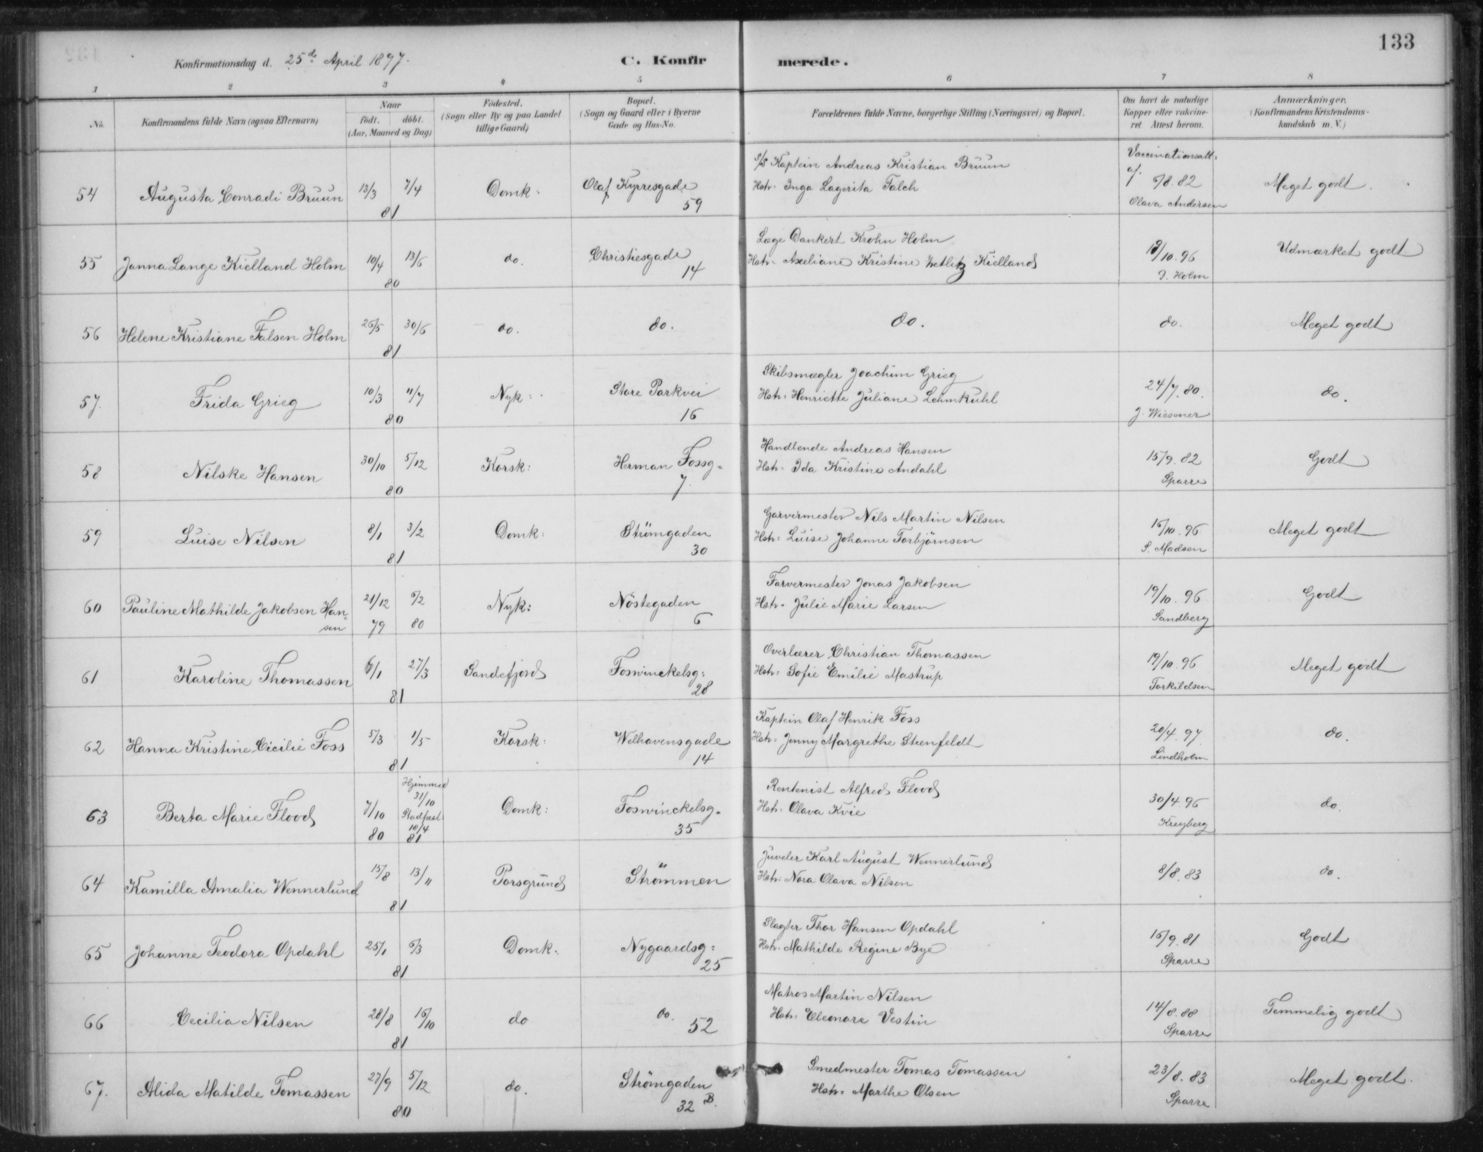 133
Konfirmationsdag d. 25de April 1897.
C. Konfirmerede.
1 2 3 4 5 6 7 8
No. Konfirmandens fulde Navn (ogsaa Efternavn) Naar født. døbt. (Aar, Maaned og Dag) Fødested. (Sogn eller By og paa Landet tillige Gaard) Bopæl. (Sogn og Gaard eller i Byerne Gade og Hus-No. Forældrenes fulde Navne, borgerlige Stilling (Næringsvei) og Bopæl. Om havt de naturlige Kopper eller vakcineret Attest herom. Anmærkninger. (Konfirmandens Kristendomskundskab m. V.)
54 Augusta Conradi Bruun 13/3 7/4 81 Domk. Olaf Kyrresgade 59 Kaptein Andreas Kristian Bruun
Hstr. Inga Lagerita Falch Vaccinationsatt. af 8.82 Olava Andersen Meget godt.
55 Janna Lange Kielland Holm 10/4 13/6 80 do. Christiesgade 14 Læge Dankert Krohn Holm
Hstr. Axeliane Kristine Zetlitz Kielland /10.96 J. Holm Udmærket godt
56 Helene Kristiane Falsen Holm 25/5 30/6 81 do. do. do. do. Meget godt
57. Frida Grieg 10/3 11/7 80 Nyk. Store Parkvei 16 Skibsmægler Joachim Grieg
Hstr. Henriette Juliane Lehmkuhl 24/7.80. J. Wiesener do.
58 Nilske Hansen 30/10 5/12 80 Korsk: Herman Fossg. 7. Handlende Andreas Hansen
Hstr. Ida Kristine Andahl 15/9.82 Sparre Godt
59 Luise Nilsen 8/1 3/2 81 Domk: Strömgaden 30 Garvermester Nils Martin Nilsen
Hstr. Luise Johanne Torbjörnsen 15/10.96 S. Madsen Meget godt
60 Pauline Mathilde Jakobsen Hansen 21/12 79 5/2 80 Nyk: Nöstegaden 6 Farvermester Jonas Jakobsen
Hstr. Julie Marie Larsen 19/10.96 Sandberg Godt
61 Karoline Thomassen 6/1 27/3 81 Sandefjord Foswinckelsg: 28 Overlærer Christian Thomassen
Hstr. Sofie Emilie Mastrup 19/10.96 Torkildsen Meget godt
62 Hanna Kristine Cicilie Foss 5/3 1/5 81 Korsk: Welhavensgade 14 Kaptein Olaf Henrik Foss
Hstr. Jenny Margrethe Steenfeldt 20/4.97 Lindholm do.
63 Berta Marie Flood 7/10 80 Hjemmed 31/10 Stadfæst 10/4 81 Domk: Foswinckelsg. 35 Rentenist Alfred Flood
Hstr. Olava Kvie 30/4 96 Kreyberg do.
64 Kamilla Amalia Wennerlund 15/8 13/11 81 Porsgrund Strömmen Juveler Karl August Wennerlund
Hstr. Nora Olava Nilsen 8/8.83 do.
65 Johanne Teodora Opdahl 25/1 6/3 81 Domk. Nygaardsg: 25 Slagter Thor Hansen Opdahl
Hstr. Mathilde Regine Bye 15/9.81 Sparre Godt
66 Cecilia Nilsen 28/8 16/10 81 do do. 52 Matros Martin Nilsen
Hstr. Eleonore Vestin 14/8.88 Sparre Temmelig godt
67. Alida Matilde Tomassen 27/9 5/12 80 do. Strömgaden 32 B. Smedmester Tomas Tomassen
Hstr. Marthe Olsen 23/8.83 Sparre Meget godt.